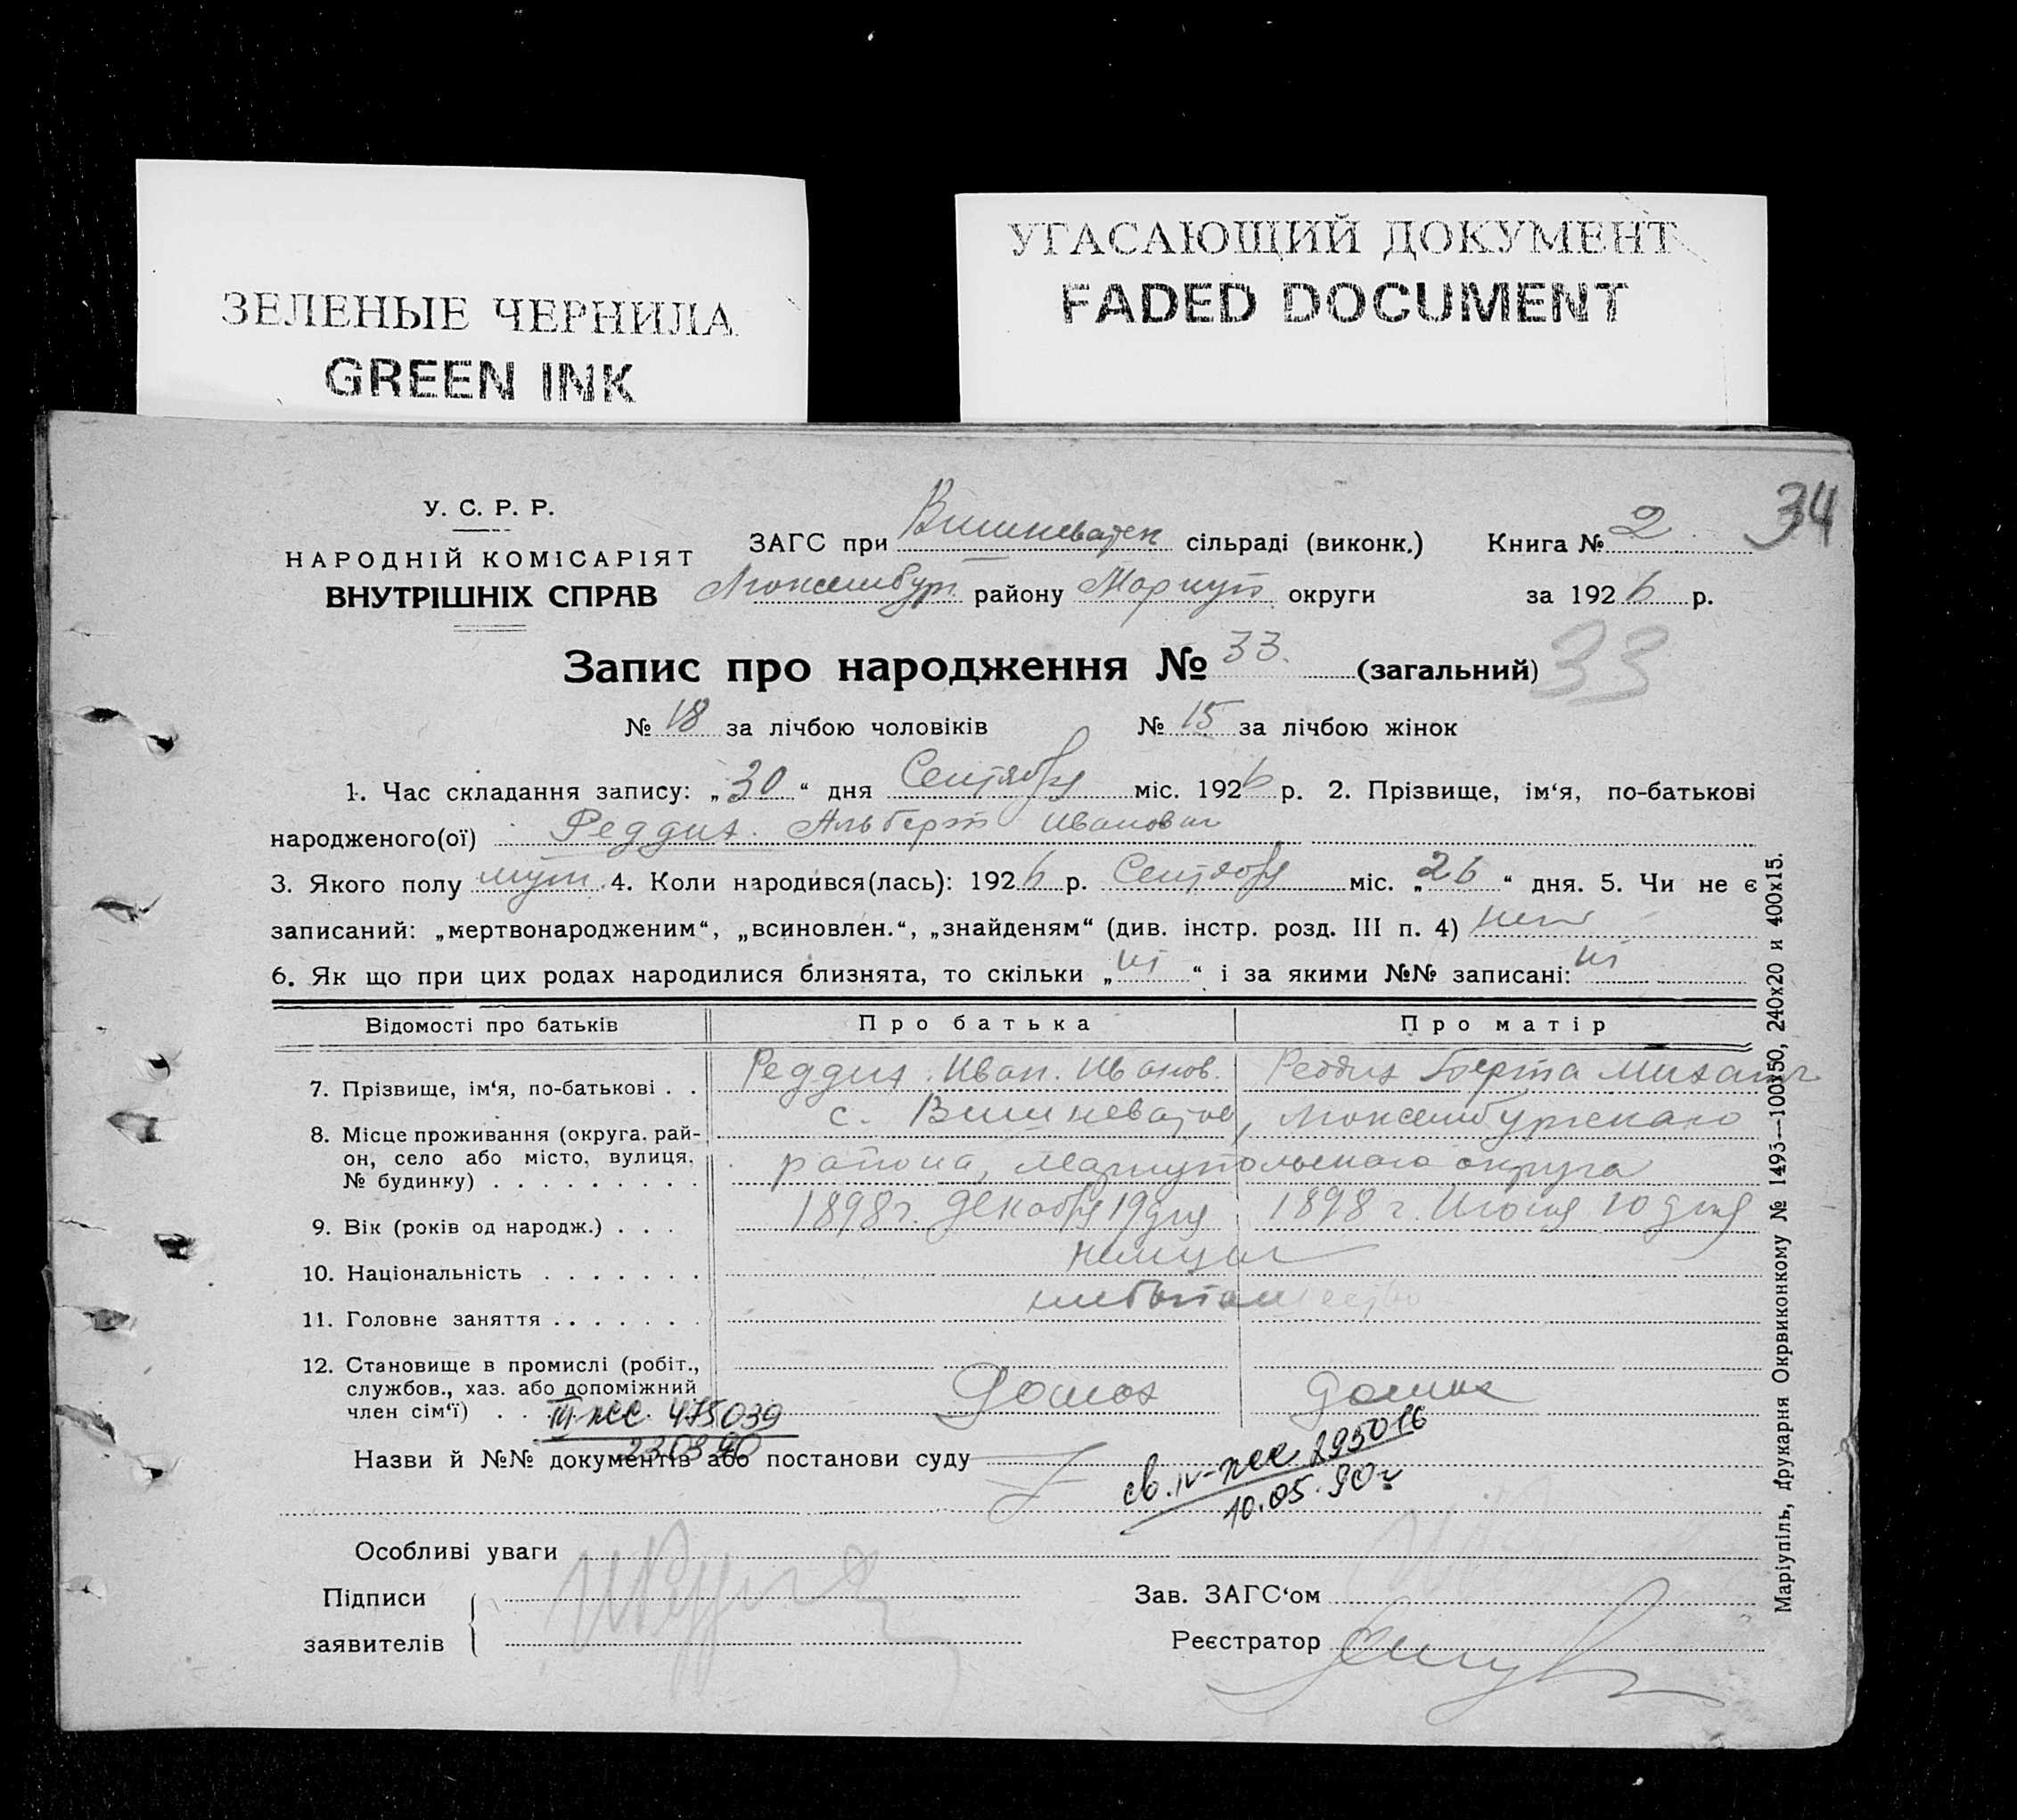 ЗЕЛЕНЫЕ ЧЕРНИЛА
GREEN INK
УГАСАЮЩИЙ ДОКУМЕНТ
FADED DOCUMENT
34
У. С. Р. Р.
НАРОДНІЙ КОМІСАРІЯТ
ВНУТРІШНІХ СПРАВ
ЗАГС при Вишневатск сільраді (виконк.) Книга № 2
Люксембург району Мариуп округи за 1926 р.
Запис про народження № 33. (загальний) 33
№ 18 за лічбою чоловіків № 15 за лічбою жінок
1. Час складання запису: „30“ дня Сентября міс. 1926 р. 2. Прізвище, ім‘я, по-батькові
народженого(ої) Реддих. Альберт Иванович
3. Якого полу муж. 4. Коли народився(лась): 1926 р. Сентября міс. „26“ дня. 5. Чи не є
записаний: „мертвонародженим“, „всиновлен.“, „знайденям“ (див. інстр. розд. III п. 4) нет
6. Як що при цих родах народилися близнята, то скільки „ні“ і за якими №№ записані: ні
Відомості про батьків Про батька Про матір
7. Прізвище, ім‘я, по-батькові . . Реддих. Иван. Иванов. Реддих Берта Михайл
8. Місце проживання (округа, рай-
он, село або місто, вулиця,
№ будинку) . . . . . . . . .
с. Вишневатое, Люксембургского
района, Мариупольского округа
9. Вік (років од народж.) . . . 1898 г. Декабря 19 дня 1898 г. Июня 10 дня
10. Національність . . . . . . . немцы
11. Головне заняття . . . . . . .
12. Становище в промислі (робіт.,
службов., хаз. або допоміжний
член сім‘ї) . .
Домох Домих
III ЖС 475039
23 03 90
Назви й №№ документів або постанови суду
св. IV-ЖС 295016
10.05.90г
Особливі уваги
Підписи
заявителів
Зав. ЗАГС‘ом
Реєстратор
Маріупіль, друкарня Окрвиконкому № 1493—100х50, 240х20 и 400х15.